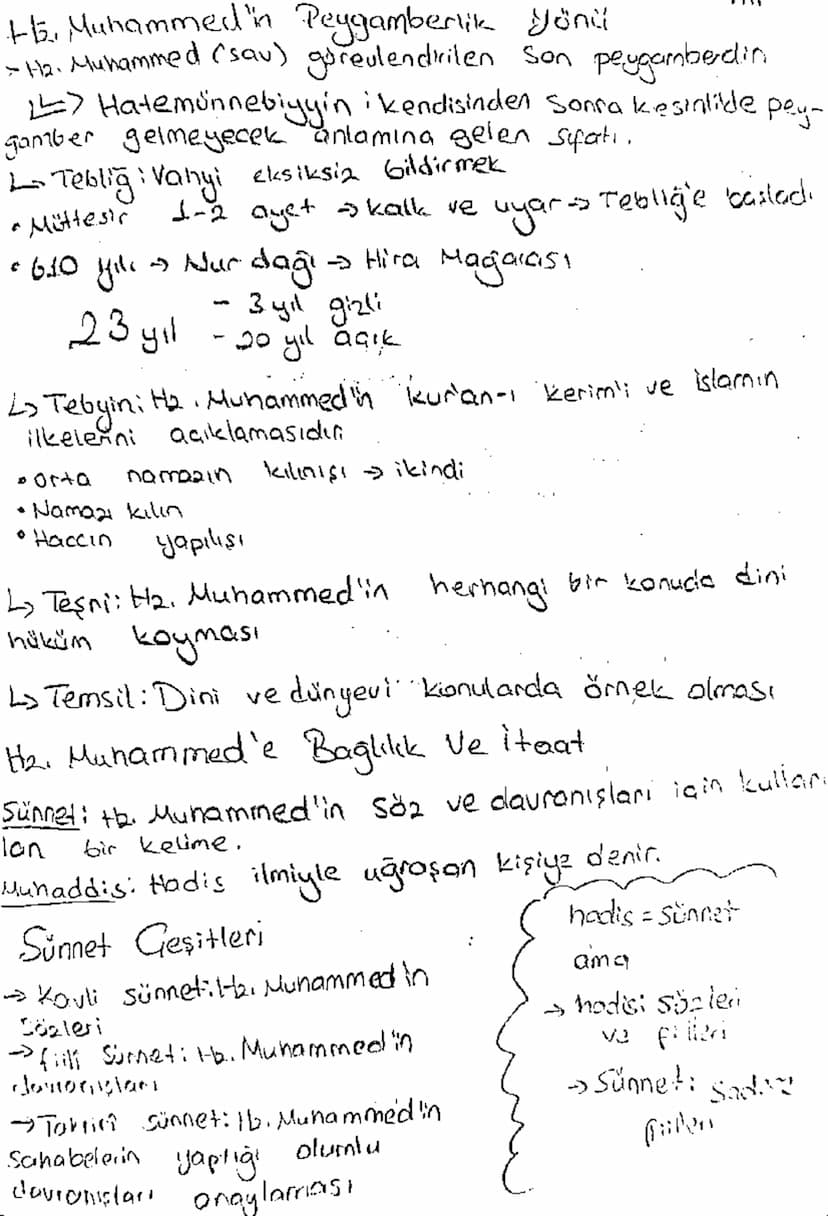 Hz. Muhammed'in Peygamberlik Yönü
- Hz. Muhammed (sav) görevlendirilen son peygamberdir.
↳ Hatemünnebiyyin : kendisinden sonra kesinlikle pey-
gamber gelmeyecek anlamına gelen sıfatı.
↳ Tebliğ : Vahyi eksiksiz bildirmek
• Müttesir 1-2 ayet → kalk ve uyar → Tebliğ'e başladı.
• 610 yılı → Nur dağı → Hira Mağarası
- 3 yıl gizli
23 yıl - 20 yıl açık
↳ Tebyin: Hz. Muhammed'in kur'an-ı kerim'i ve islamın
ilkelerini açıklamasıdır.
• Orta namazın kılınışı → ikindi
• Namazı kılın
• Haccın yapılışı
↳ Teşri: Hz. Muhammed'in herhangi bir konuda dini
hüküm koyması
↳ Temsil: Dini ve dünyevi konularda örnek olması
Hz. Muhammed'e Bağlılık Ve İtaat
Sünnet: Hz. Muhammed'in söz ve davranışları için kullanı
lan bir kelime.
Muhaddis: Hadis ilmiyle uğraşan kişiye denir.
Sünnet Çeşitleri
→ Kavli sünnet: Hz. Muhammed'in
sözleri
→ fiili sünnet: Hz. Muhammed'in
davranışları
→ Takriri sünnet: Hz. Muhammed'in
Sahabelerin yaptığı olumlu
davranışları onaylaması
hadis = sünnet
ama
→ hadis: sözleri
ve fiilleri
→ Sünnet: sadece
fiilleri